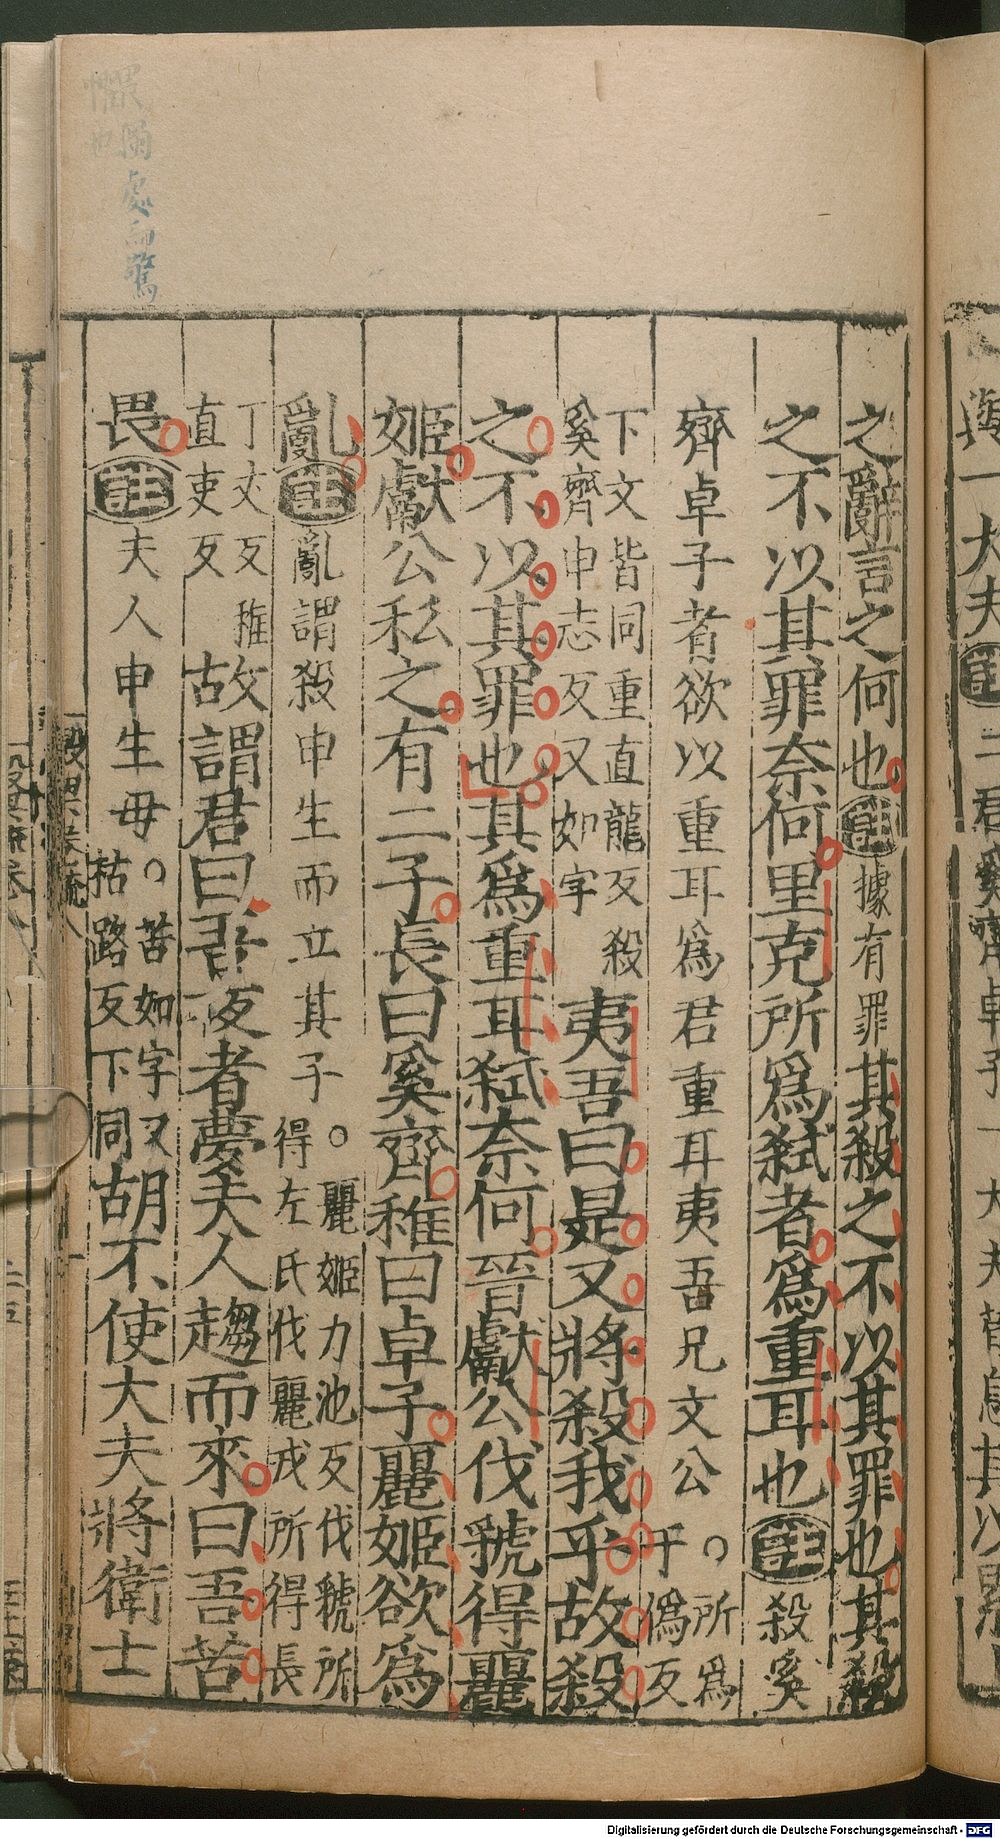 之辭言之何也註據有罪其殺之不以其罪也其殺
之不以其罪奈何里克所爲弒者爲重耳也註殺奚
齊卓子者欲以重耳爲君重耳夷吾兄文公。所爲于僞反
下文皆同重直龍反殺奚齊申志反又如字夷吾曰是又將殺我乎故殺
之不以其罪也其爲重耳弒奈何晉獻公伐虢得麗
姬獻公私之有二子長曰奚齊稚曰卓子麗姬欲爲
亂註亂謂殺申生而立其子。麗姬力池反伐虢所得左氏伐麗戎所得長
丁丈反稚直吏反故謂君曰吾夜者夢夫人趨而來曰吾苦
畏註夫人申生母。苦如字又枯路反下同胡不使大夫將衛士
處而驚
Digitalisierung gefördert durch die Deutsche Forschungsgemeinschaft - DFG